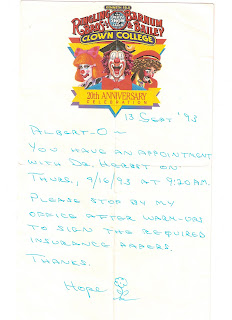 RINGLING BROS. BARNUM & BAILEY
CLOWN COLLEGE
20th ANNIVERSARY
CELEBRATION
13 SEPT '93
ALBERT-O ~
YOU HAVE AN APPOINTMENT
WITH DR. HERBST ON
THURS., 9/16/93 AT 9:20AM.
PLEASE STOP BY MY
OFFICE AFTER WARM-UPS
TO SIGN THE REQUIRED
INSURANCE PAPERS.
THANKS.
Hope